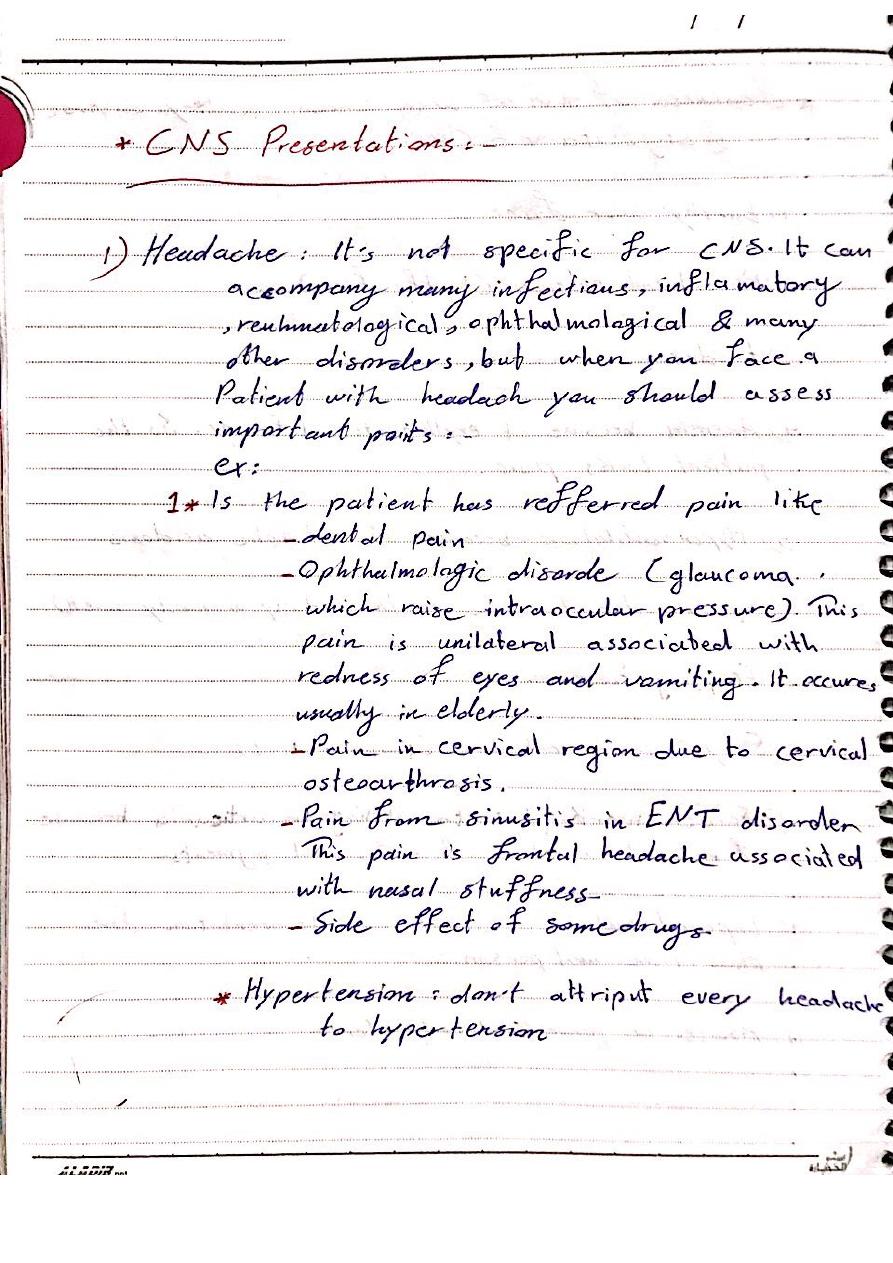 / /
* CNS Presentations:-
1) Headache: It's not specific for CNS. It can
accompany many infections, inflamatory
, reuhmatological, ophthalmological & many
other disorders, but when you face a
Patient with headach you should assess
important poits:-
ex:
1* Is the patient has refferred pain like
- dental pain
- Ophthalmologic disorde (glaucoma
which raise intraoccular pressure). This
pain is unilateral associated with
redness of eyes and vomiting. It occures
usually in elderly.
- Pain in cervical region due to cervical
osteoarthrosis.
- Pain from sinusitis in ENT disorder
This pain is frontal headache associated
with nasal stuffness
- Side effect of some drugs.
* Hypertension: don't attriput every headache
to hypertension